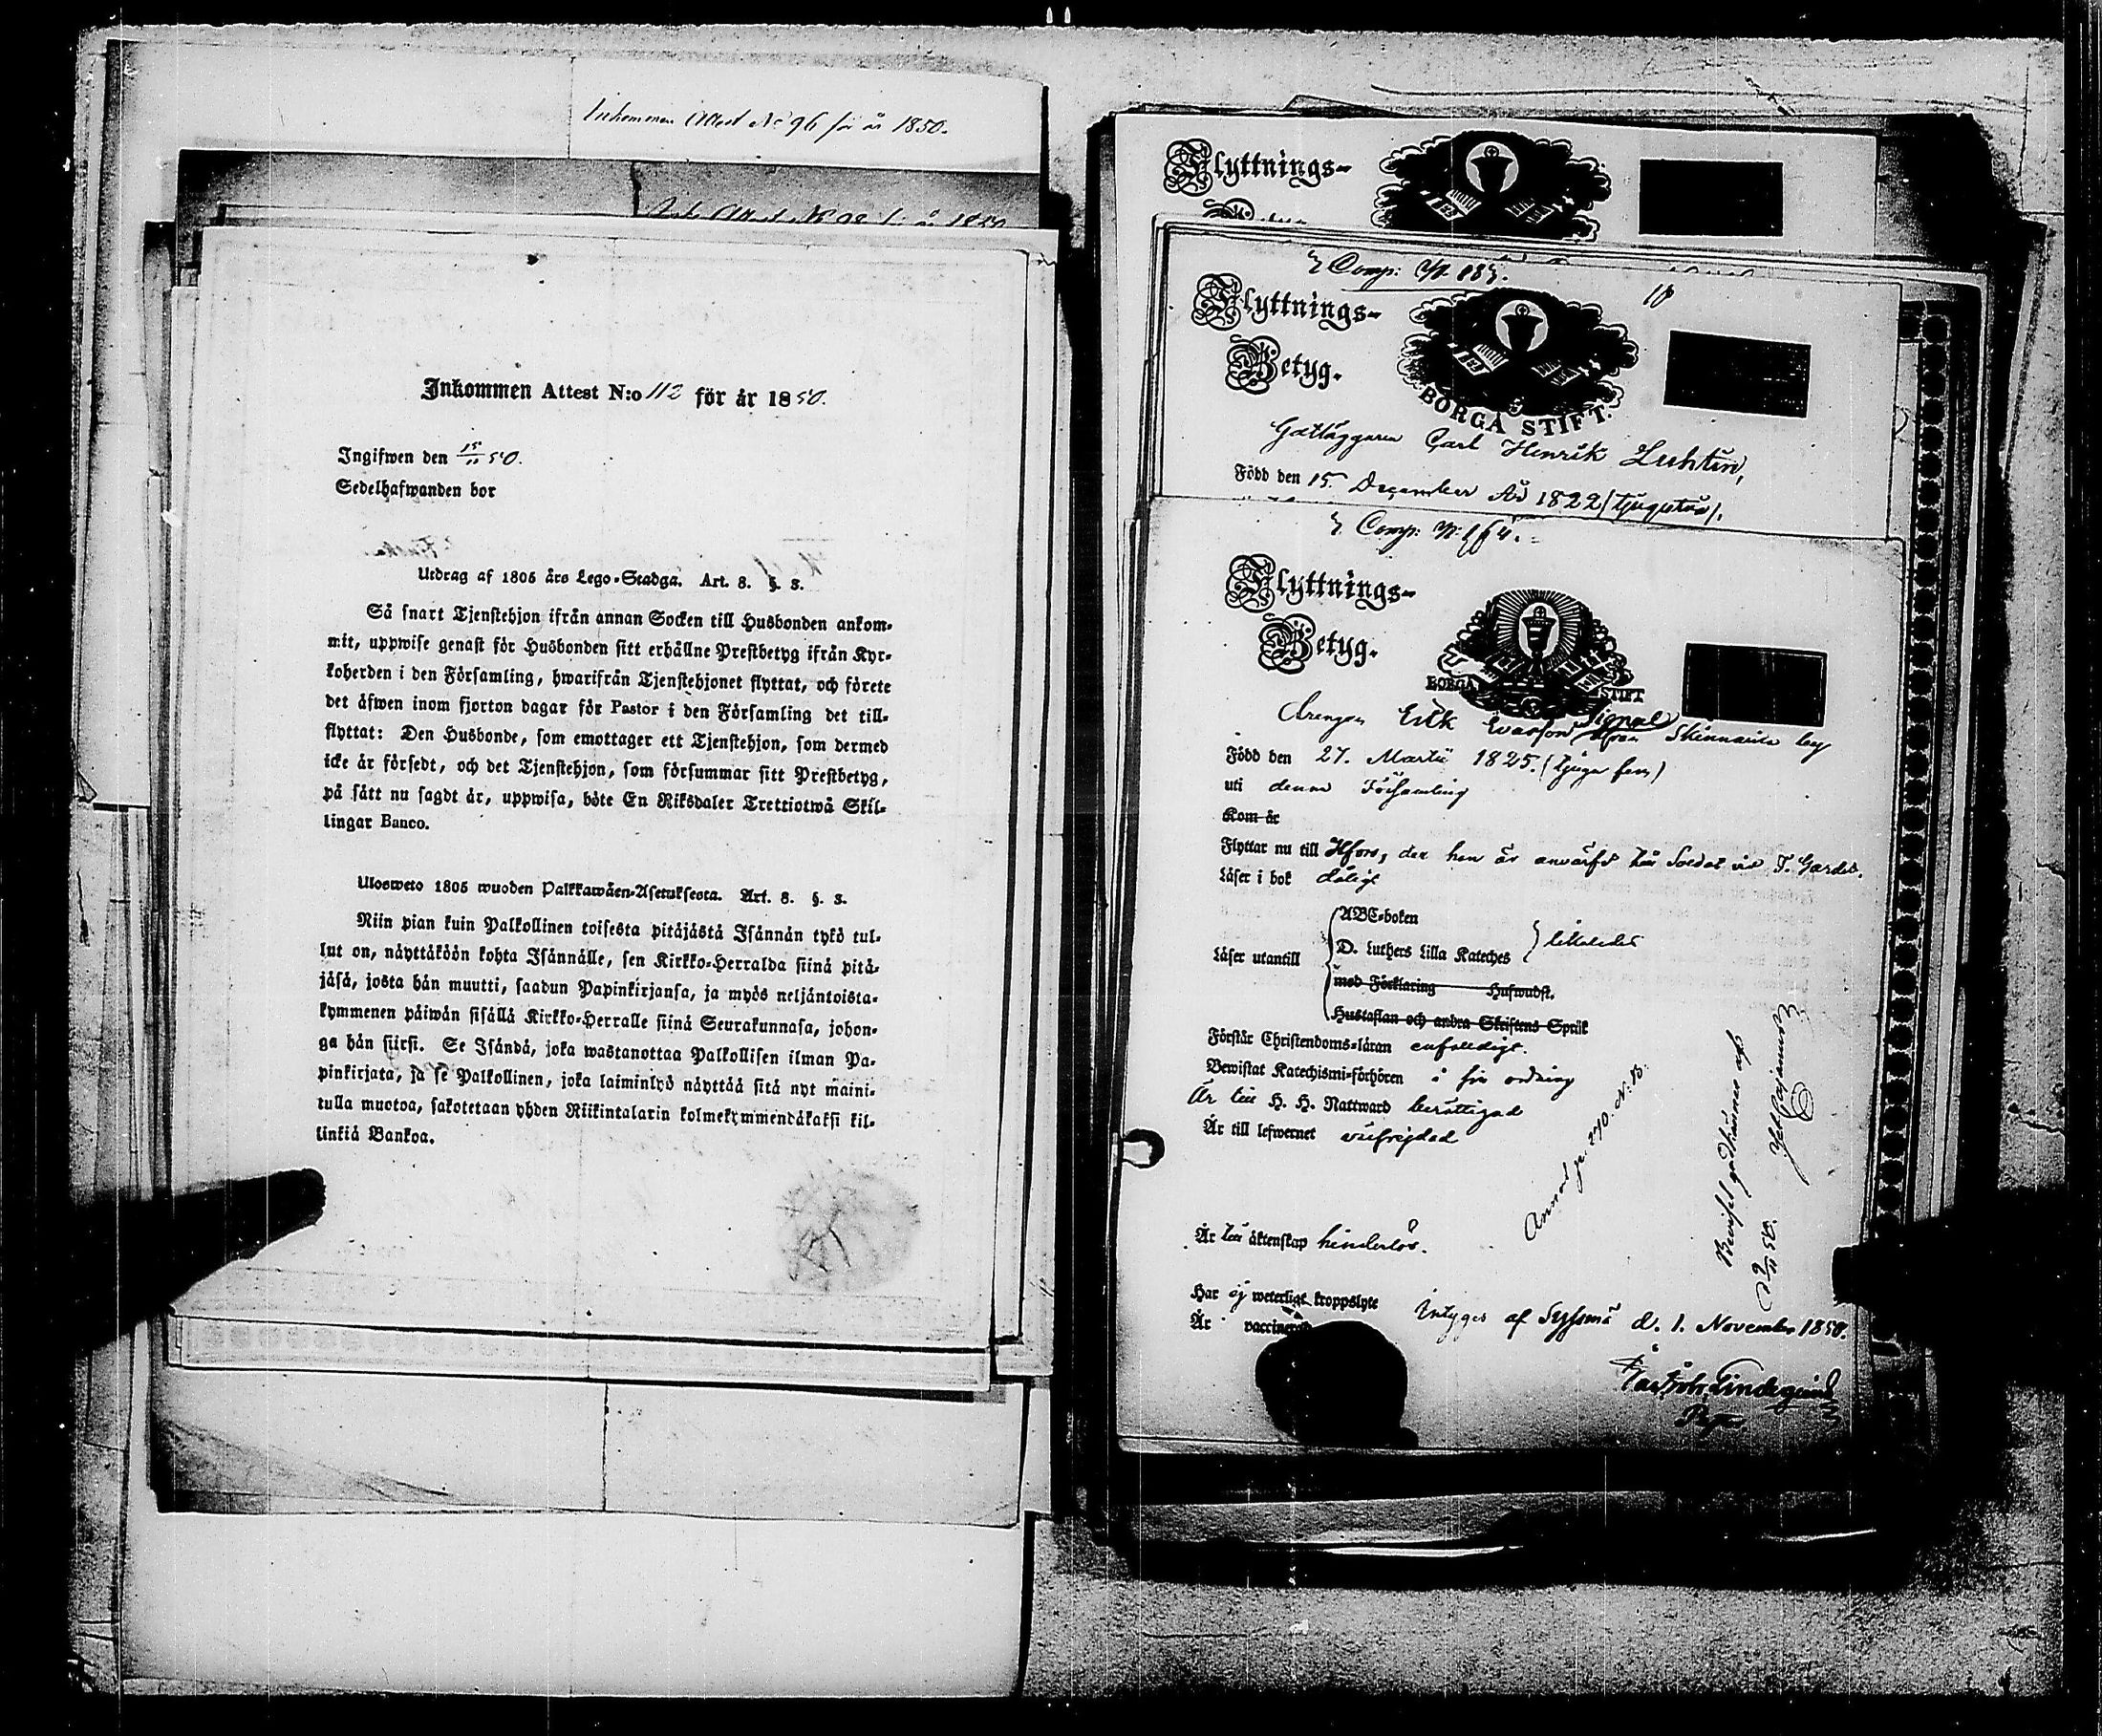 Inkommen Attest No 96 för år 1850.
Attest No 98 för år 1850
Inkommen Attest N:o 112 för år 1850.
Ingifwen den 15/11 50.
Sedelhafwanden bor
Utdrag af 1805 års Lego-Stadga. Art. 8. §. 3.
Så snart Tjenstehjon ifrån annan Socken till Husbonden ankom-
mit, uppwise genast för Husbonden sitt erhållne Prestbetyg ifrån Kyr-
koherden i den Församling, hwarifrån Tjenstehjonet flyttat, och förete
det äfwen inom fjorton dagar för Pastor i den Församling det till-
flyttat: Den Husbonde, som emottager ett Tjenstehjon, som dermed
icke är försedt, och det Tjenstehjon, som försummar sitt Prestbetyg,
på sätt nu sagdt är, uppwisa, böte En Riksdaler Trettiotwå Skil-
lingar Banco.
Ulosweto 1805 wuoden Palkkawäen-Asetuksesta. Art. 8. §. 3.
Niin pian kuin Palkollinen toisesta pitäjästä Isännän tykö tul-
lut on, näyttäköön kohta Isännälle, sen Kirkko-Herralda siinä pitä-
jäsä, josta hän muutti, saadun Papinkirjansa, ja myös neljäntoista-
kymmenen päiwän sisällä Kirkko-Herralle siinä Seurakunnasa, johon-
ga hän siirsi. Se Isändä, joka wastanottaa Palkollisen ilman Pa-
pinkirjata, ja se Palkollinen, joka laiminlyö näyttää sitä nyt maini-
tulla muotoa, sakotetaan yhden Riikintalarin kolmekymmendäkaksi kil-
linkiä Bankoa.
Flyttnings-
Betyg.
Comp: No 183.
10
Flyttnings-
Betyg.
BORGÅ STIFT.
Carl Henrik
Född den 15 December År 1822 (tjugutvå).
Comp: No 164.
Flyttnings-
Betyg.
BORGÅ STIFT
Drengen Erik Evasson Signal ifrån Skinnarila by
Född den 27. Martii 1825. (tjugu fem)
uti denna Församling
Kom år
Flyttar nu till Hfors, der han är anvärfd till Soldat vid F. Gardet.
Läser i bok dåligt
Läser utantill
ABC-boken
D. Luthers Lilla Kateches
med Förklaring Hufwudst.
Hustaflan och andra Skriftens Språk
Förstår Christendoms-läran enfaldigt.
Bewistat Katechismi-förhören i sin ordning
Är till H. H. Nattward berättigad
Är till lefwernet oförwitlig
Är till äktenskap hinderlös.
Har ej weterligt kroppslyte
Är vaccinerad
Intygas af Syssmä d. 1. November 1850.
Annot. p. 240. N: 13.